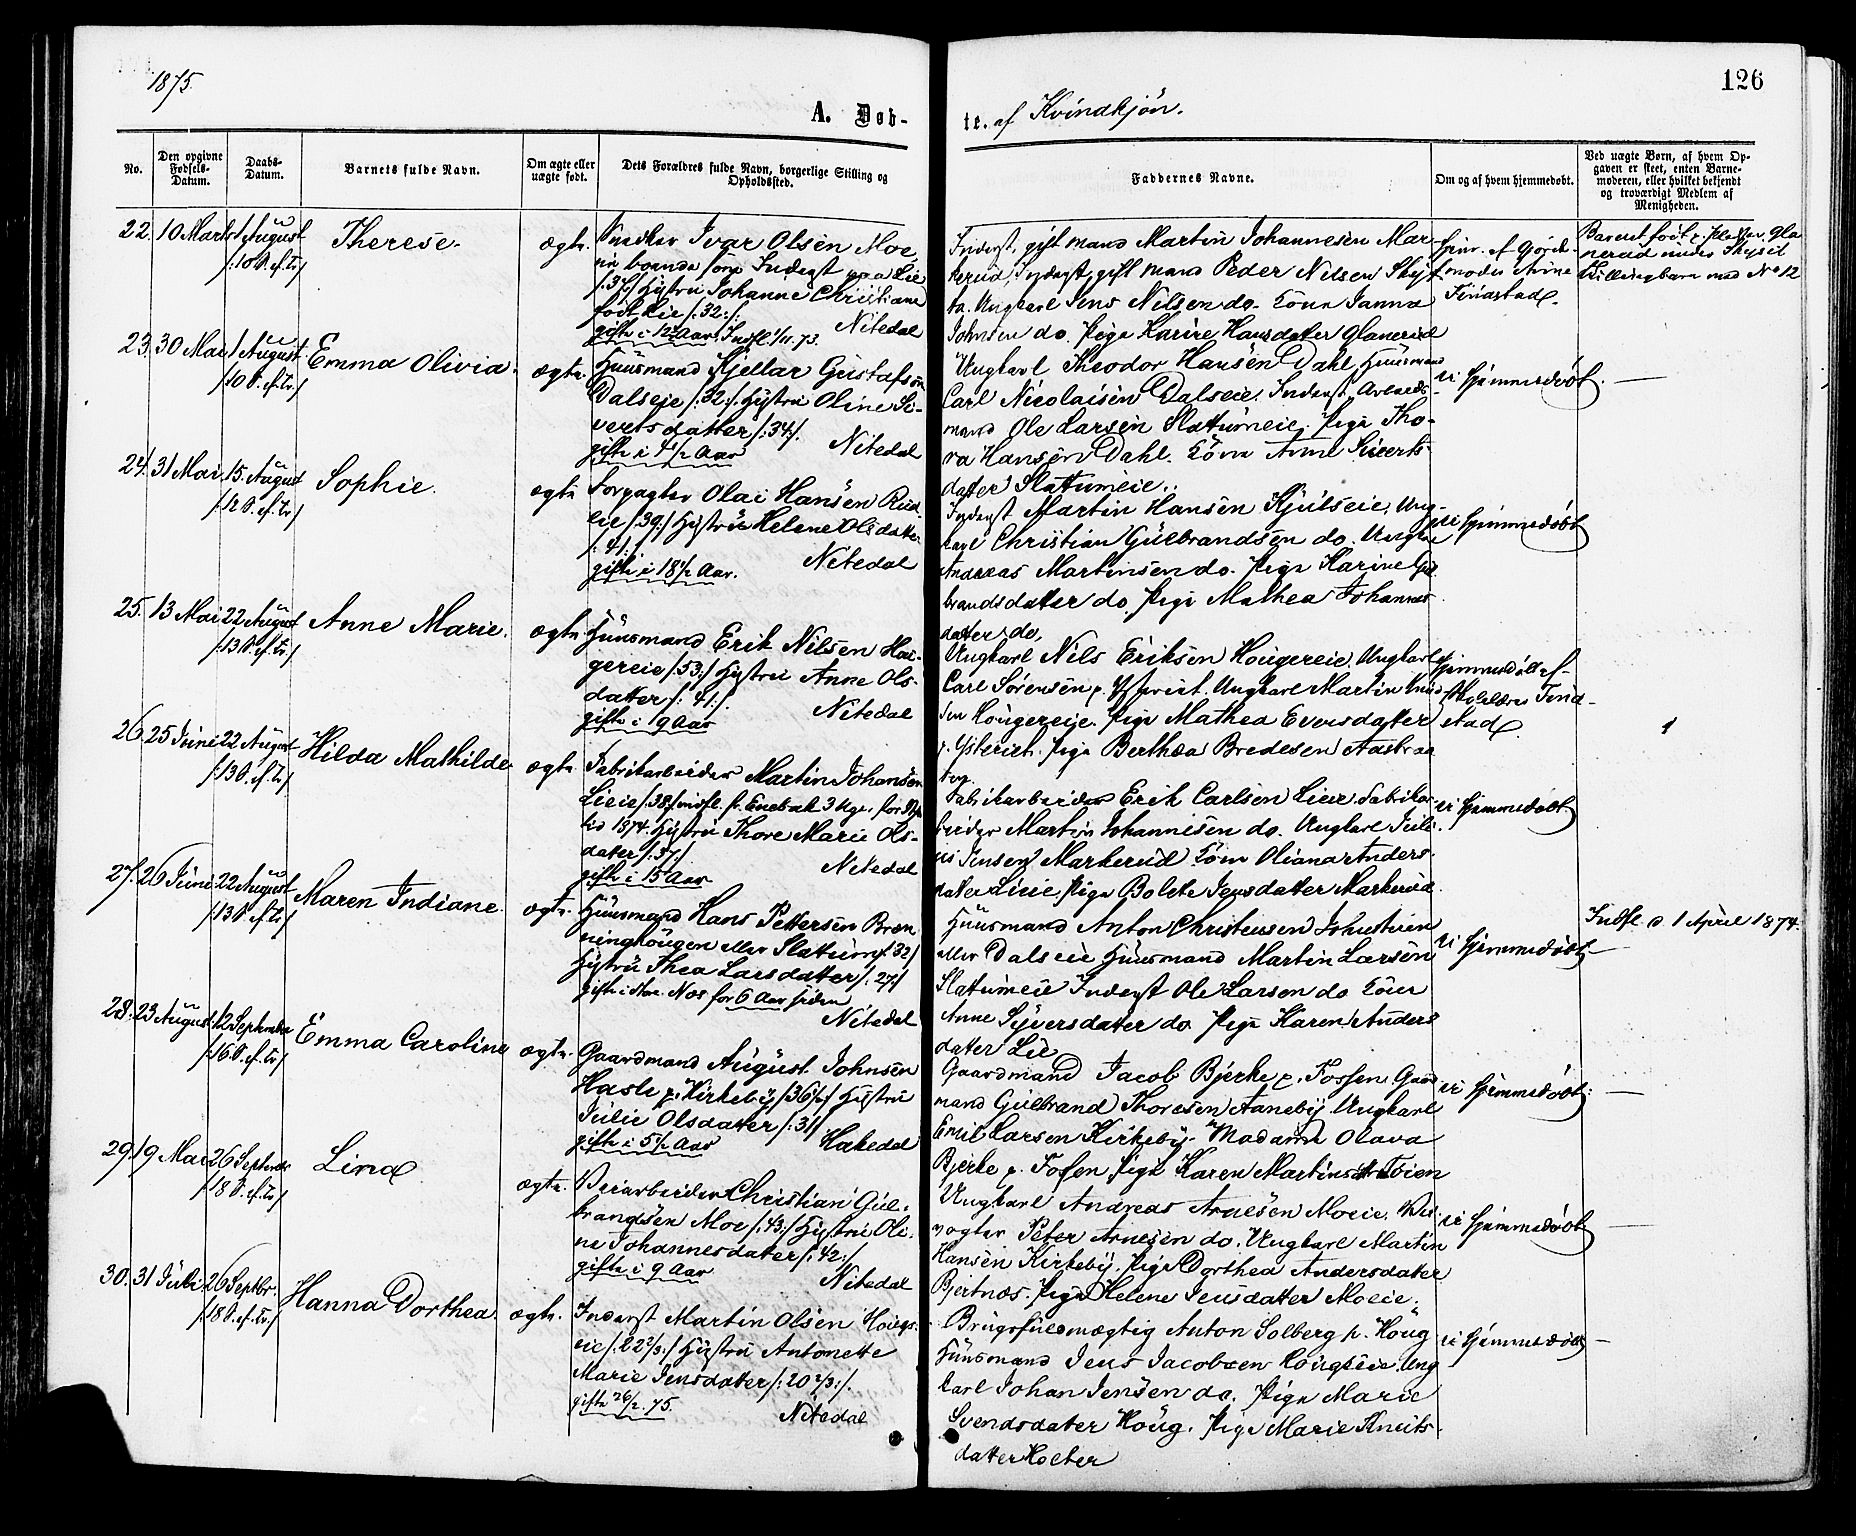 1875.
126
A. Døb-
te. af Kvindkjøn.
No.
Den opgivne
Fødsels-
Datum.
Daabs-
Datum.
Barnets fulde Navn.
Om ægte eller
uægte født.
Dets Forældres fulde Navn, borgerlige Stilling og
Opholdssted.
Faddernes Navne.
Om og af hvem hjemmedøbt.
Ved uægte Børn, af hvem Op-
gaven er skeet, enten Barne-
moderen, eller hvilket bekjendt
og troværdigt Medlem af
Menigheden.
22. 10 Marts 1 August
/:10 S. ef. tr/
Therese.
ægte.
Snedker Ivar Olsen Moe,
boende som Inderst paa Lie
/:37/ Hustru Johanne Christiane
født Lie /:32:/
gifte i 12 Aar. Indfl. 1/11 73.
Nitedal
Inderst, gift mand Martin Johannesen Mar-
kerud, Inderst, gift mand Peder Nilsen Skyt-
ta. Ungkarl Jens Nilsen do. Kone Janna
Johnsen do. Pige Karine Hansdatter Glanerud
hjm. af Gjord-
moder Anne
Finastad.
Barnet født p. Pladsen Gla
nerud under Skyset
Tvillingbarn med No 12
23. 30 Mai 1 August
/:10 S. ef. tr/
Emma Olivia.
ægte.
Huusmand Kjellar Gustafsen
Dalseie /:32:/ Hustru Oline Si-
vertsdatter /:34/.
gifte i 4 1/2 Aar
Nitedal
Ungkarl Theodor Hansen Dahl, Huusmand
Carl Nicolaisen Dalseie. Inderst, Arbeids-
mand Ole Larsen Slatumeie. Pige Tho-
ra Hansen Dahl. Kone Anne Siverts-
datter Slatumeie.
ei hjemmedøbt.
24. 31 Mai 15. August
/:12 S. ef. tr/
Sophie.
ægte
Forpagter Olai Hansen Rud
eie /:39:/ Hustru Helene Olsdatter
/:41:/
gifte i 18 1/2 Aar.
Nitedal
Inderst Martin Hansen Kjulseie, Ung-
karl Christian Gulbrandsen do. Ungkarl
Andreas Martinsen do. Pige Karine Gul
brandsdatter do. Pige Mathea Johannes
datter do.
ei hjemmedøbt
25. 13 Mai 22 August
/:13 S. ef. tr/
Anne Marie.
ægte.
Huusmand Erik Nilsen Hou-
gereie /:53:/ Hustru Anne Ols-
datter /:41:/.
gifte i 9 Aar
Nitedal
Ungkarl Nils Eriksen Hougereie. Ungkarl
Carl Sørensen p. Ysteriet. Ungkarl Martin Knud
sen Hougereie. Pige Mathea Eversdatter
p. Ysteriet. Pige Berthea Bredesen Aastra
hjemmedøbt af
Find-
stad
26. 25 Juni 22 August
/:13 S. ef. tr/
Hilda Mathilde
ægte
Fabrikarbeider Martin Johansen
Lieie /:38/ indfl. fr. Enebak 3 Uger før Jul
tid 1874. Hustru Thore Marie Ols-
datter /:37/
gifte i 15 Aar
Nitedal
Fabrikarbeider Erik Carlsen Lieie. Fabrikar-
beider Martin Johannesen do. Ungkarl Juli-
us Jensen Markerud. Kone Oliana Anders-
datter Lieie. Pige Bolete Jensdatter Markerud.
ei hjemmedøbt
27. 26 Juni 22 August
/:13 S. ef. tr/
Maren Indiane.
ægte.
Huusmand Hans Pettersen Bræn
ninghougen eller Slatum /:32/
Hustru Thea Larsdatter /:27/
gifte i Nos for 6 Aar siden
Nitedal
Huusmand Anton Christensen Johnstuen
eller Dalseie Huusmand Martin Larsen
Slatumeie Inderst Ole Larsen do Kone
Anne Syversdatter do Pige Karen Anders
datter Lie
ei hjemmedøbt
Indfl. d. 1 April 1874.
28. 23 August 12 September
/:16 S. ef. tr/
Emma Caroline
ægte.
Gaardmand August Johnsen
Hasle p. Kirkeby /:36 1/2/ Hustru
Julie Olsdatter /:31/
gifte i 5 1/2 Aar
Hakedal
Gaardmand Jacob Bjerke p. Fossen, Gaard
mand Gulbrand Thoresen Aaneby Ungkarl
Emil Larsen Kirkeby. Madame Olava
Bjerke p. Fossen Pige Karen Martinsdtr Tøien
ei hjemmedøbt.
29. 19 Mai 26 September
/:18 S. ef. tr/
Lina
ægte.
Veiarbeider Christian Gul-
brandsen Moe /:43:/ Hustru Oli-
ne Johannesdatter /:42:/
gifte i 9 Aar
Nitedal
Ungkarl Andreas Arnesen Moeie. Vei-
vogter Peter Arnesen do. Ungkarl Martin
Hansen Kirkeby. Pige Dorthea Andersdatter
Bjertnæs. Pige Helene Jensdatter Moeie.
ei hjemmedøbt
30. 31 Juli 26 Septbr.
/:18 S. ef. tr/
Hanna Dorthea.
ægte.
Inderst Martin Olsen Hougs-
eie /:22 2/3:/ Hustru Antonette
Marie Jensdatter /:20 2/3:/.
gifte 26/2. 75.
Nitedal
Brugsfuldmægtig Anton Solberg p. Houg
Huusmand Jens Jacobsen Hougseie. Ung
karl Johan Jensen do. Pige Marie
Svendsdatter Houg. Pige Marie Knuts-
datter Holter
ei hjemmedøbt